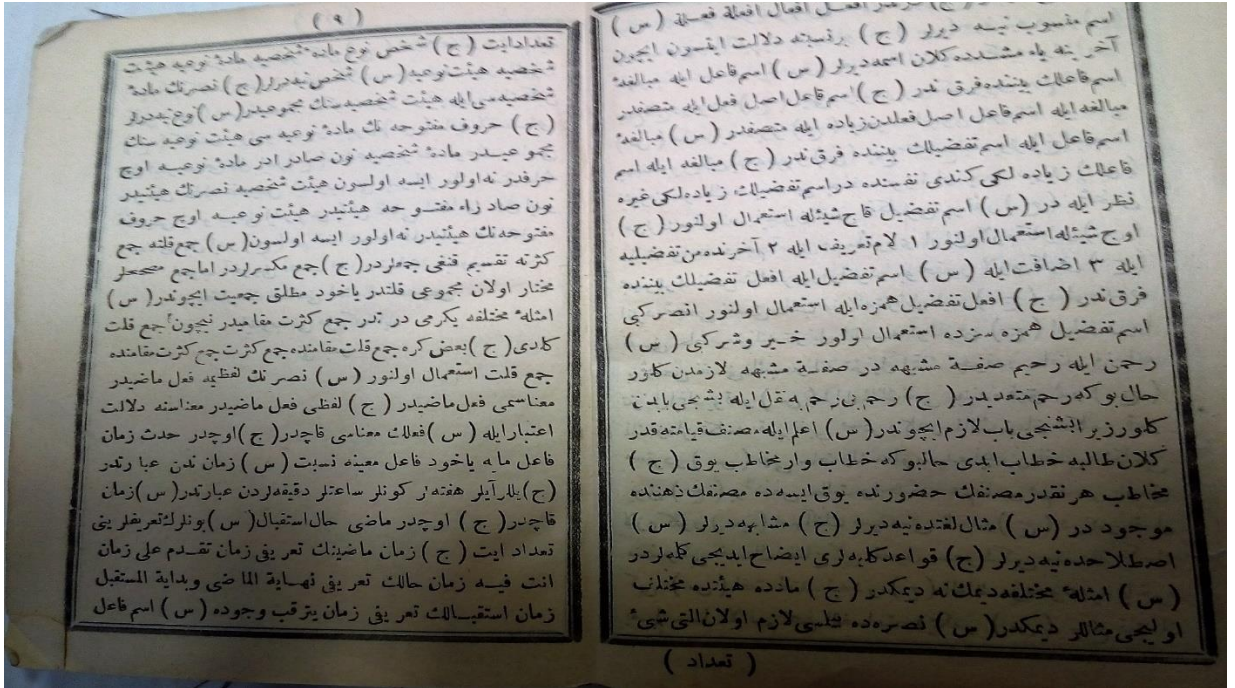 اسم منسوب نيه ديرلر ( ج ) برنسبته دلالت ايتسون ايچون
آخرينه ياء مشدده كلان اسمه ديرلر ( س ) اسم فاعل ايله مبالغهٔ
اسم فاعلك بيننده فرق ندر ( ج ) اسم فاعل اصل فعل ايله متصفدر
مبالغه ايله اسم فاعل اصل فعلدن زياده ايله متصفدر ( س ) مبالغهٔ
اسم فاعل ايله اسم تفضيلك بيننده فرق ندر ( ج ) مبالغه ايله اسم
فاعلك زياده لكى كندى نفسنده در اسم تفضيلك زياده لكى غيره
نظر ايله در ( س ) اسم تفضيل قاچ شيئله استعمال اولنور ( ج )
اوچ شيئله استعمال اولنور ١ لام تعريف ايله ٢ آخرنده من تفضيليه
ايله ٣ اضافت ايله ( س ) اسم تفضيل ايله افعل تفضيلك بيننده
فرق ندر ( ج ) افعل تفضيل همزه ايله استعمال اولنور انصر كبى
اسم تفضيل همزه سزده استعمال اولور خير وشر كبى ( س )
رحمن ايله رحيم صفة مشبهه در صفة مشبهه لازمدن كلور
حال بو كه رحم متعديدر ( ج ) رحم يى رحم يه نقل ايله بشنجى بابدن
كلور زيرا بشنجى باب لازم ايچوندر ( س ) اعلم ايله مصنف قيامته قدر
كلان طالبه خطاب ايدى حالبو كه خطاب وار مخاطب يوق ( ج )
مخاطب هر نقدر مصنفك حضورنده يوق ايسه ده مصنفك ذهننده
موجود در ( س ) مثال لغتده نيه ديرلر ( ج ) مشابهه ديرلر ( س )
اصطلاحده نيه ديرلر ( ج ) قواعد كليه لرى ايضاح ايديجى كلمه لردر
( س ) امثلهٔ مختلفه ديمك نه ديمكدر ( ج ) مادده هيئتده مختلف
اوليجى مثاللر ديمكدر ( س ) نصر ده بيلنمسى لازم اولان التى شئ
( تعداد )
( ٩ )
تعداد ايت ( ج ) شخص نوع مادهٔ شخصيه مادهٔ نوعيه هيئت
شخصيه هيئت نوعيه ( س ) شخص نيه ديرلر ( ج ) نصرنك مادهٔ
شخصيه سى ايله هيئت شخصيه سنك مجموعيدر ( س ) نوع نيه ديرلر
( ج ) حروف مفتوحه نك مادهٔ نوعيه سى هيئت نوعيه سنك
مجموعيدر مادهٔ شخصيه نون صاد را در مادهٔ نوعيه اوچ
حرفدر نه اولور ايسه اولسون هيئت شخصيه نصرنك هيئتيدر
نون صاد راء مفتوحه هيئتيدر هيئت نوعيه اوچ حروف
مفتوحه نك هيئتيدر نه اولور ايسه اولسون ( س ) جمع قلته جمع
كثرته تقسيم قنغى جمعلردر ( ج ) جمع مكسرلردر اما جمع مصححلر
مختار اولان مجموعى قلتدر ياخود مطلق جمعيت ايچوندر ( س )
امثلهٔ مختلفه يكرمى در تدر جمع كثرت مقاميدر نيچون جمع قلت
كلدى ( ج ) بعض كره جمع قلت مقامنده جمع كثرت جمع كثرت مقامنده
جمع قلت استعمال اولنور ( س ) نصرنك لفظيمه فعل ماضيدر
معناسمى فعل ماضيدر ( ج ) لفظى فعل ماضيدر معناسنه دلالت
اعتبار ايله ( س ) فعلك معناسى قاچدر ( ج ) اوچدر حدث زمان
فاعل مايه ياخود فاعل معينه نسبت ( س ) زمان ندن عبارتدر
( ج ) ييللر آيلر هفته لر كونلر ساعتلر دقيقه لردن عبارتدر ( س ) زمان
قاچدر ( ج ) اوچدر ماضى حال استقبال ( س ) بونلرك تعريفلرينى
تعداد ايت ( ج ) زمان ماضينك تعريفى زمان تقدم على زمان
انت فيه زمان حالك تعريفى نهاية الماضى وبداية المستقبل
زمان استقبالك تعريفى زمان يترقب وجوده ( س ) اسم فاعل